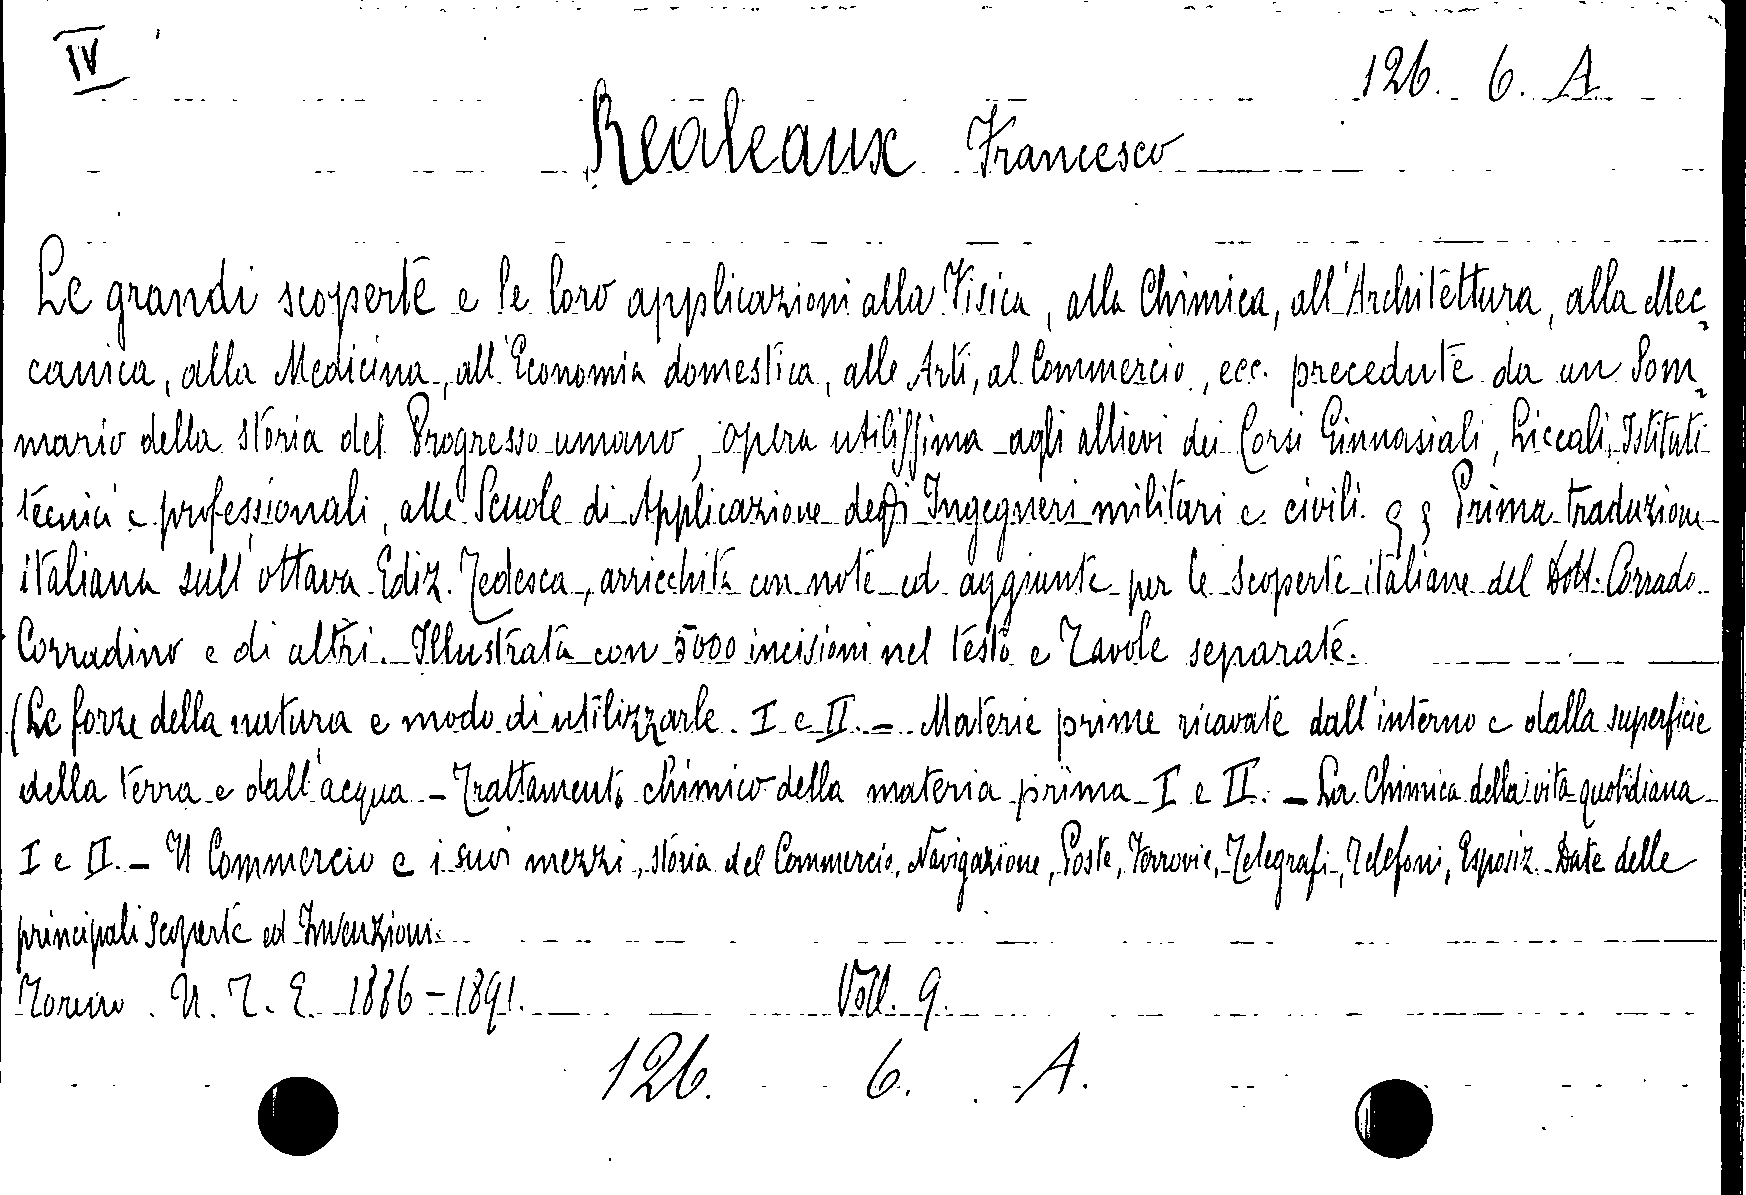 IV
126. 6. A
Realeaux Francesco
Le grandi scoperte e le loro applicazioni alla Fisica, alla Chimica, all'Architettura, alla Mec=
canica, alla Medicina, all'Economia domestica, alle Arti, al Commercio, ecc. precedute da un Som=
mario della storia del Progresso umano, opera utilissima agli allievi dei Corsi Ginnasiali, Liceali, Istituti
tecnici e professionali, alle Scuole di Applicazione degli Ingegneri militari e civili. Prima traduzione
italiana sull'ottava Ediz. Tedesca, arricchita con note ed aggiunte per le scoperte italiane del Dott. Corrado
Corradino e di altri. Illustrata con 5000 incisioni nel testo e Tavole separate.
(Le forze della natura e modo di utilizzarle. I e II. - Materie prime ricavate dall'interno e dalla superficie
della terra e dall'acqua - Trattamento chimico della materia prima I e II. - La Chimica della vita quotidiana
I e II. - Il Commercio e i suoi mezzi, storia del Commercio, Navigazione, Poste, Ferrovie, Telegrafi, Telefoni, Esposiz. Date delle
principali scoperte ed Invenzioni.
Torino. U. T. E. 1886-1891. Voll. 9.
126. 6. A.